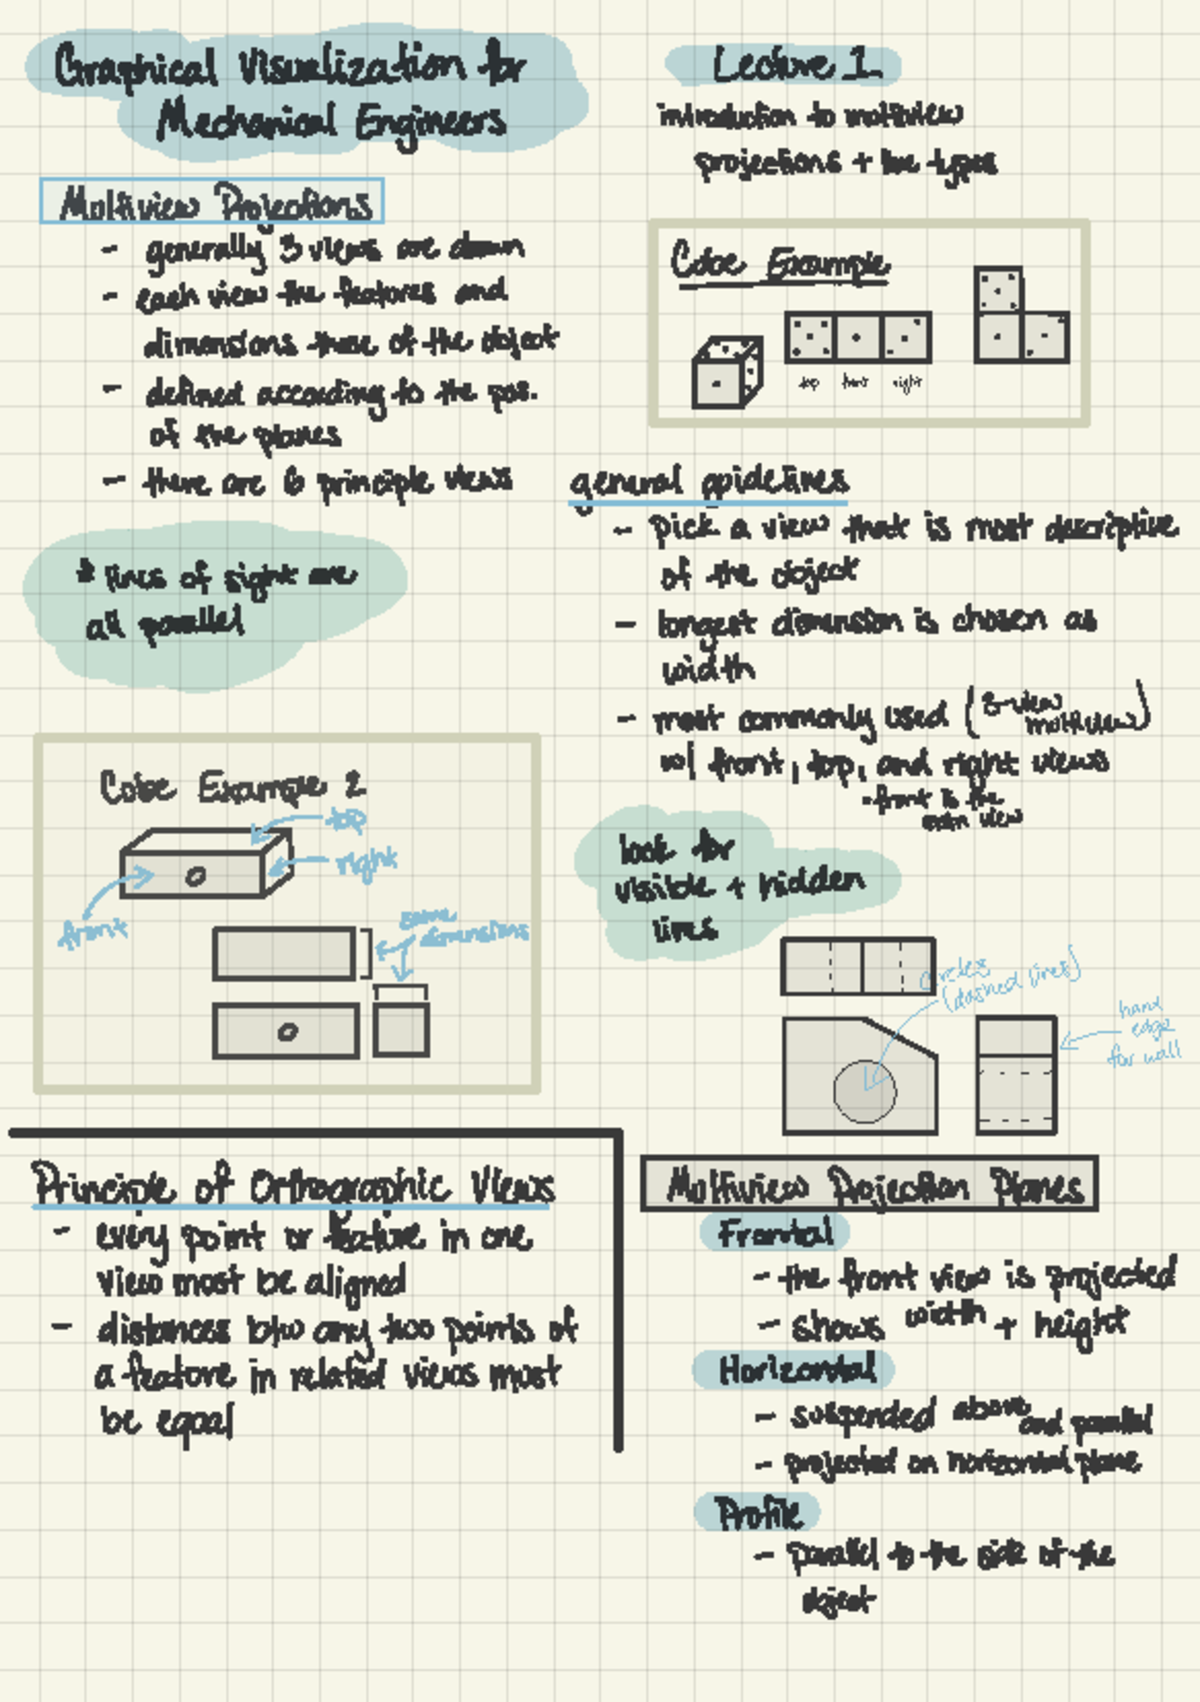 Graphical Visualization for
Mechanical Engineers
Lecture 1
introduction to multiview
projections + line types
Multiview Projections
- generally 3 views are drawn
- each view the features and
dimensions three of the object
- defined according to the pos.
of the planes
- there are 6 principle views
* lines of sight are
all parallel
Cube Example
top front right
general guidelines
- pick a view that is most descriptive
of the object
- longest dimension is chosen as
width
- most commonly used (3-view
multiview)
w/ front, top, and right views
- front is the
main view
Cube Example 2
top
right
front
same
dimensions
look for
visible + hidden
lines
circles
(dashed lines)
hard
edge
for wall
Principle of Orthographic Views
- every point or feature in one
view must be aligned
- distances btw any two points of
a feature in related views must
be equal
Multiview Projection Planes
Frontal
- the front view is projected
- shows width + height
Horizontal
- suspended above and parallel
- projected on horizontal plane
Profile
- parallel to the side of the
object